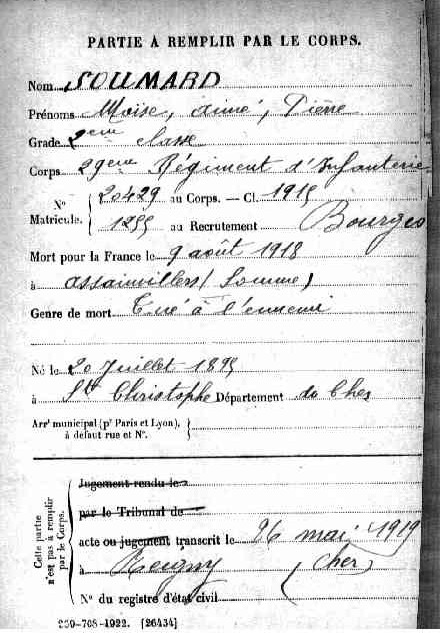 PARTIE À REMPLIR PAR LE CORPS.
Nom SOUMARD
Prénoms Moïse, Aimé, Pierre
Grade 2eme classe
Corps 29eme Régiment d'Infanterie
N° Matricule. { 20429 au Corps. — Cl. 1915
1255 au Recrutement Bourges
Mort pour la France le 9 août 1918
à Assainvillers (Somme)
Genre de mort Tué à l'ennemi
Né le 20 Juillet 1895
à St Christophe Département du Cher
Arrt municipal (pr Paris et Lyon), à défaut rue et N°. }
Cette partie n'est pas à remplir par le Corps.
Jugement rendu le
par le Tribunal de
acte ou jugement transcrit le 26 mai 1919
à Reigny (Cher)
N° du registre d'état civil
250-708-1922. [26434]